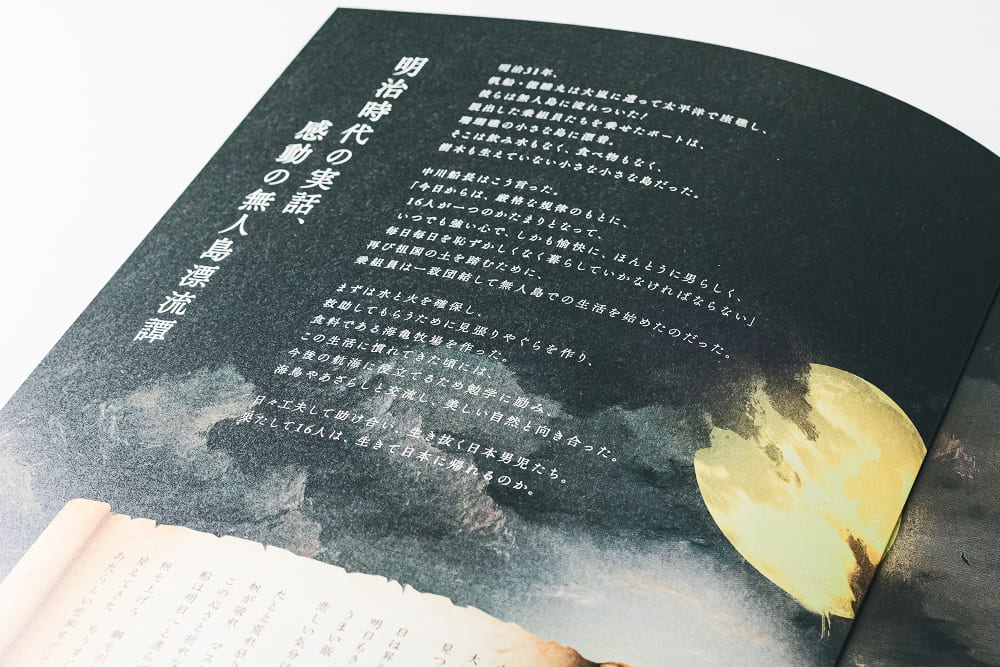 明治時代の実話、
感動の無人島漂流譚
明治31年、
帆船・龍睡丸は大嵐に遭って太平洋で座礁し、
彼らは無人島に流れついた!
脱出した乗組員たちを乗せたボートは、
珊瑚礁の小さな島に漂着。
そこは飲み水もなく、食べ物もなく、
樹木も生えていない小さな小さな島だった。
中川船長はこう言った。
「今日からは、厳格な規律のもとに、
16人が一つのかたまりとなって、
いつでも強い心で、しかも愉快に、ほんとうに男らしく、
毎日毎日を恥ずかしくなく暮らしていかなければならない」
再び祖国の土を踏むために、
乗組員は一致団結して無人島での生活を始めたのだった。
まずは水と火を確保し、
救助してもらうために見張りやぐらを作り、
食料である海亀牧場を作った。
この生活に慣れてきた頃には、
今後の航海に役立てるため勉学に励み、
海鳥やあざらしと交流し、美しい自然と向き合った。
日々工夫して助け合い、生き抜く日本男児たち。
果たして16人は、生きて日本に帰れるのか。
見つ
日は昇
明日もき
うまい飯
悲しい気分は
たとえ荒れ狂う
帆が破れ マス
この心さえ折れな
船は明日へと進ん
帆を上げろ
見えてきた もうすぐ
あたらしい世界すぐそ